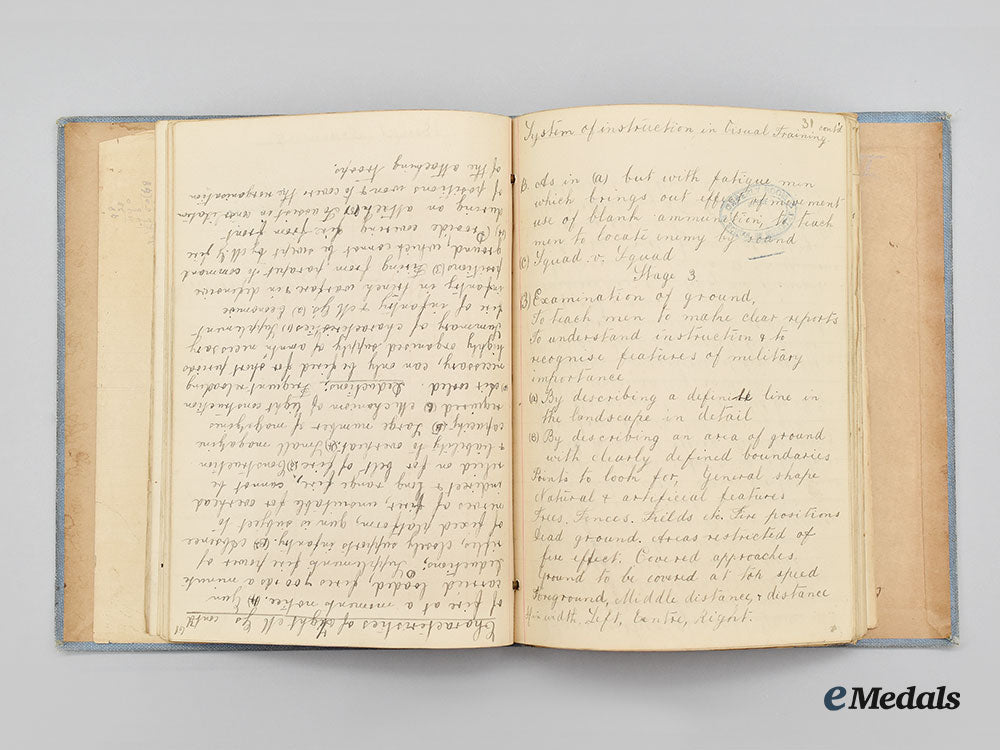 Characteristics of Light M Gs cont'd 61
of fire at a moments notice. Gun
carried loaded, fires 700 rds a minute
Deductions; Supplements fire power of
rifles, closely supports infantry. (2) Absence
of fixed platform, gun is subject to
nerves of firer, unsuitable for overhead
indirect & long range fire, cannot be
relied on for belt of fire. Construction
& liability to overheat. Small magazine
capacity. Large number of magazines
required Mechanism of light construction
Deductions; Frequent reloading
necessary, can only be fired for short periods
highly organised supply of ammn necessary
Summary of characteristics (1) Supplement
fire of infantry & M Gs (2) Economise
infantry in trench warfare in defensive
positions (3) Firing from parapet to command
ground, which cannot be swept by M G fire
(4) Provide covering fire from front
during an attack (5) To assist in consolidation
of positions won & to cover the reorganisation
of the attacking troops.
31
System of instruction in Visual Training cont'd
B. As in (a) but with fatigue men
which brings out effect of movement
use of blank ammunition, to teach
men to locate enemy by sound
(C) Squad v. Squad
Stage 3
(B) Examination of ground,
To teach men to make clear reports
To understand instruction & to
recognise features of military
importance
(a) By describing a definite line in
the landscape in detail
(B) By describing an area of ground
with clearly defined boundaries
Points to look for, General shape
Natural & artificial features
Trees, Fences, Fields &c. Fire positions
Dead ground. Areas restricted of
fire effect. Covered approaches.
Ground to be covered at top speed
Foreground, Middle distance, & distance
width, Left, Centre, Right.
eMedals